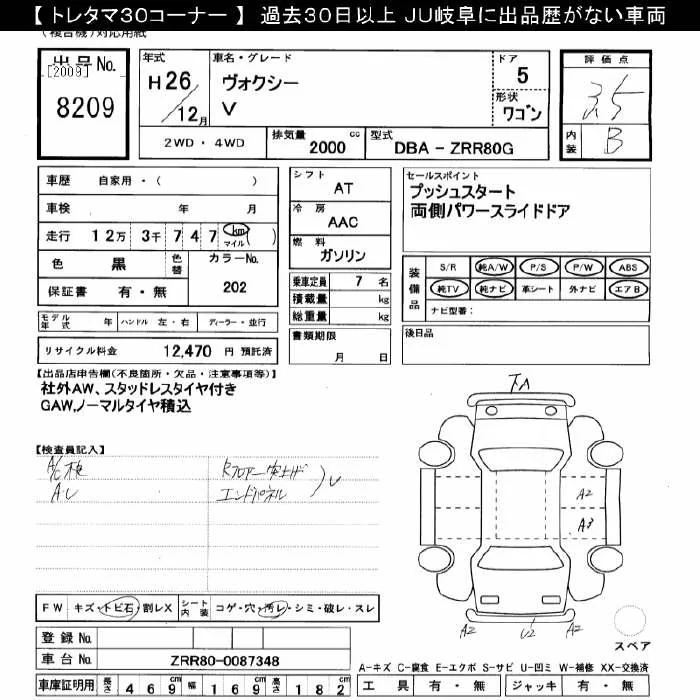 【トレタマ30コーナー】過去30日以上 JU岐阜に出品歴がない車両
(複合機)対応用紙
出品No.
[2009]
8209
年式
H26
/12月
車名・グレード
ヴォクシー
V
ドア
5
形状
ワゴン
評価点
3.5
内装
B
2WD・4WD
排気量
2000 cc
型式
DBA - ZRR80G
車歴 自家用・( )
車検 年 月
走行 12万 3千 7 4 7 km マイル ( )
色 黒 色替 カラーNo.
保証書 有・無 202
シフト
AT
冷房
AAC
燃料
ガソリン
乗車定員 7 名
積載量 kg
総重量 kg
書類期限
月 日
セールスポイント
プッシュスタート
両側パワースライドドア
装備品
S/R 純A/W P/S P/W ABS
純TV 純ナビ 革シート 外ナビ エアB
ナビ型番:
後日品
モデル年式 年 ハンドル 左・右 ディーラー・並行
リサイクル料金 12,470 円 預託済
【出品店申告欄(不良箇所・欠品・注意事項等)】
社外AW、スタッドレスタイヤ付き
GAW,ノーマルタイヤ積込
【検査員記入】
A/C検
AU
エンドパネル
U
下A
A2
A3
A2
U2
A2
スペア
FW キズ・トビ石・割レX シート内装 コゲ・穴・汚レ・シミ・破レ・スレ
登録No.
車台No. ZRR80-0087348
車庫証明用 長さ 469cm 幅 169cm 高さ 182cm
A-キズ C-腐食 E-エクボ S-サビ U-凹ミ W-補修 XX-交換済
工具 有・無 ジャッキ 有・無